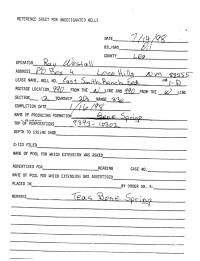 REFERENCE SHEET FOR UNDESIGNATED WELLS
DATE 7/14/98
OIL/GAS Oil
COUNTY Lea
OPERATOR Ray Westall
ADDRESS PO Box 4 Loco Hills NM 88255
LEASE NAME, WELL NO. East Smith Ranch Fed 1-D
FOOTAGE LOCATION 990 FROM THE N LINE AND 990 FROM THE W LINE
SECTION TOWNSHIP 20s RANGE 33e
COMPLETION DATE 1/16/98
NAME OF PRODUCING FORMATION Bone Spring
TOP OF PERFORATIONS 9393-10302
DEPTH TO CASING SHOE
C-123 FILED
NAME OF POOL FOR WHICH EXTENSION WAS ASKED
ADVERTISED FOR HEARING CASE NO.
NAME OF POOL FOR WHICH EXTENSION WAS ADVERTISED
PLACED IN BY ORDER NO. R-
REMARKS Teas Bone Spring